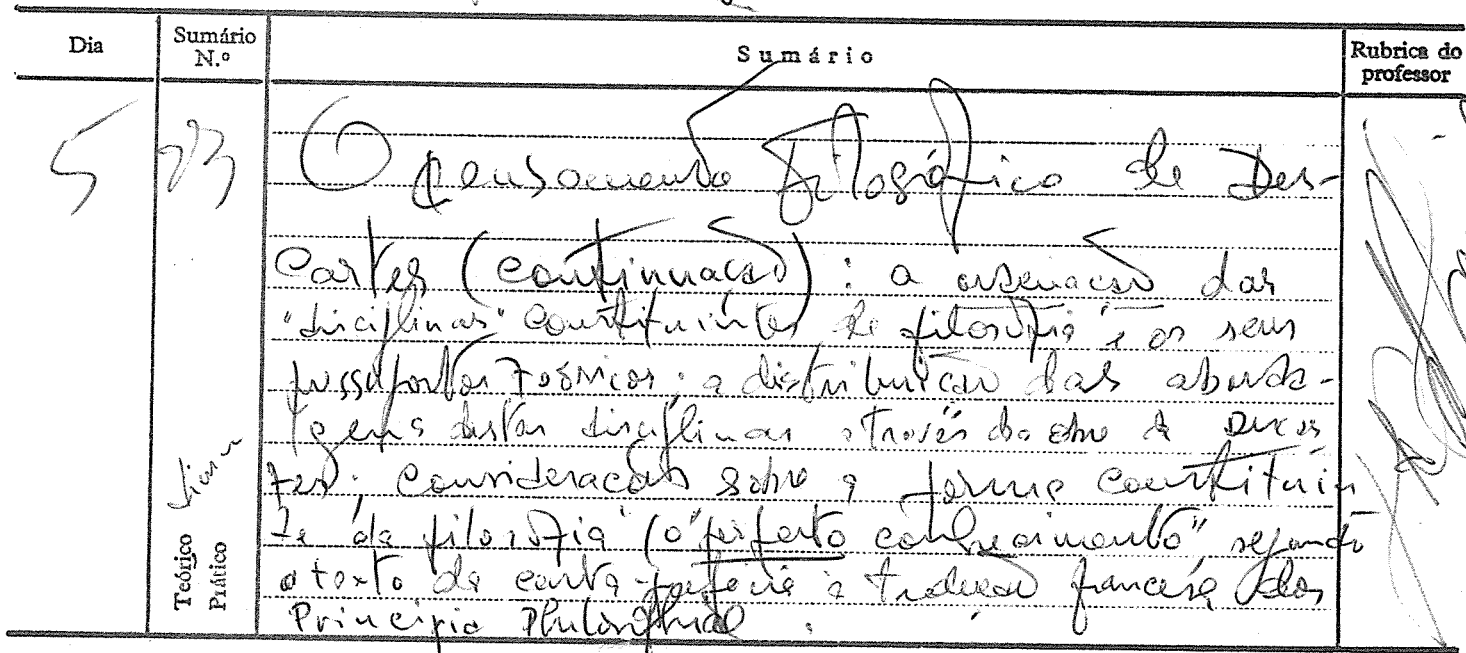 Dia Sumário N.º Sumário Rubrica do professor
5
O pensamento filosófico de Des-
cartes (continuação): a ordenação das
"disciplinas" constituintes da filosofia e os seus
pressupostos teóricos; a distribuição das aborda-
gens destas disciplinas através da obra de Descar
tes; considerações sobre a forma constituin
te da filosofia (o "perfeito conhecimento", segundo
o texto da carta-prefácio à tradução francesa dos
Principia Philosophiae.
Teórico
Prático